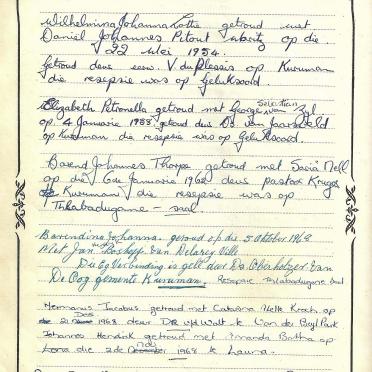 Wilhelmina Johanna Lotte getroud met
Daniel Johannes Pitout op die
22 Mei 1954.
Getroud deur eerw. V du Plessis op Kuruman
die resepsie was op Geluksoord.
Elizabeth Petronella getroud met George Sebastian van Zyl
op 4 Januarie 1958 getroud deur Ds van Jaarsveld
op Kuruman die resepsie was op Geluksoord.
Barend Johannes Thorpe getroud met Saria Nell
op die 6de Januarie 1962 deur pastoor Kruger
Kuruman die resepsie was op
Thlabadugame - saal.
Barendina Johanna. getroud op die 5 Oktober 1963
Met Jan Boshoff van Delarey Ville
Die Eg Verbinding is gelê deur Ds Oberholzer van
De Oog gemeente Kuruman. Resepsie thlabadugame saal
Hermanus Jacobus getroud met Catarina Kroch, op
die 21 Des 1968 deur DR v/d Walt te Van der Byl Park
Johannes Hendrik getroud met Amanda Botha op
die 2de Nov 1968 te